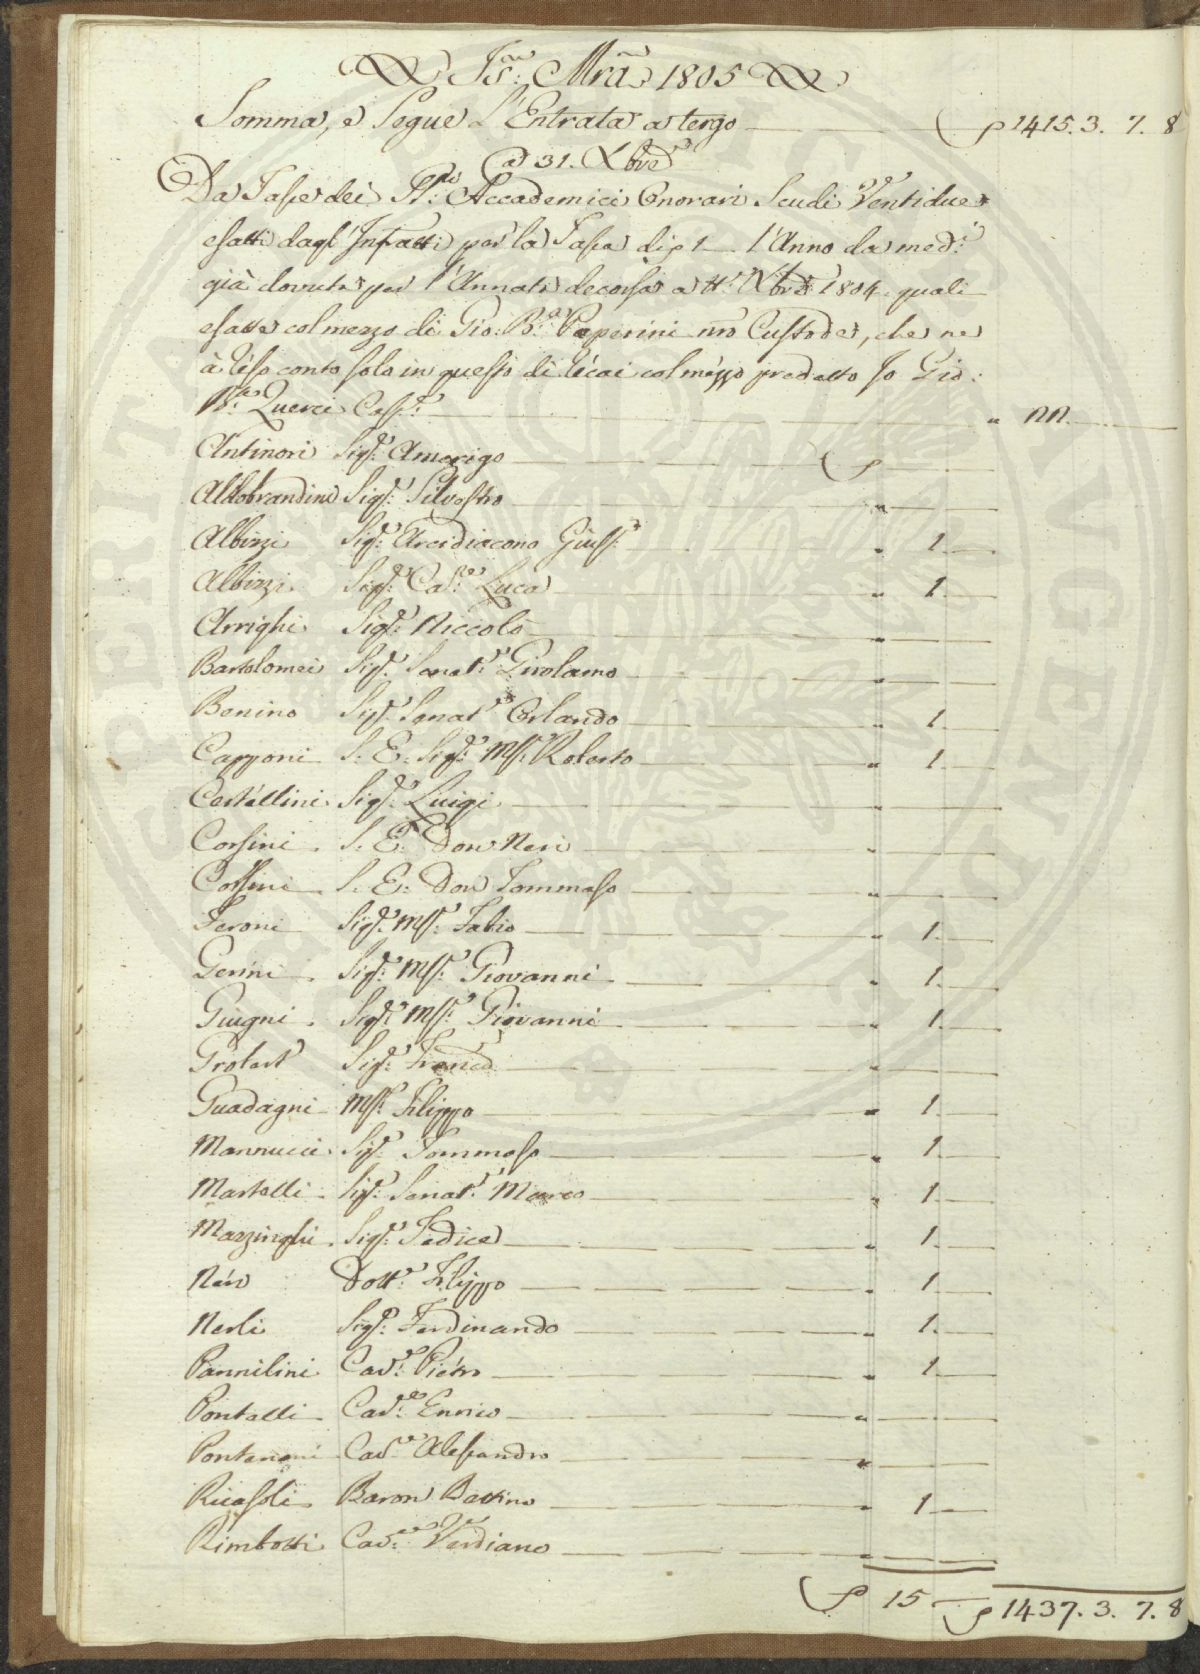 Js: Mrã 1805
Somma, e Segue L'Entrata a tergo 1415. 3. 7. 8
a 31. Xbre
Da Tasse dei SS.ri Accademici Onorari Scudi Ventidue
esatti dagl'Infratti per la Tassa di 1 l'Anno da med:i
già dovuta per l'Annata decorsa a tt.o 1804. quali
esatte col mezzo di Gio: B:a Paperini nro Custode, che ne
à reso conto solo in questo dì col mezzo predetto Jo Gio:
B:a Querci Cass:e " 22
Antinori Sig.r Amerigo
Aldobrandini Sig.r Silvestro "
Albizzi Sig.r Arcidiacono Giuss:e " 1
Albizzi Sig.r Ca.re Luca " 1
Arrighi Sig.r Niccolò "
Bartolomei Sig.r Senat.e Girolamo "
Benino Sig.r Senat.e Orlando " 1
Capponi S: E: Sig.r M.se Roberto " 1
Certellini Sig.r Luigi "
Corsini S: E: Don Neri "
Corsini S: E: Don Tommaso "
Feroni Sig.r M.se Fabio " 1
Gerini Sig.r M.se Giovanni " 1
Giugni Sig.r M.se Giovanni " 1
Sig.r Franc.o "
Guadagni M.se Filippo " 1
Mannucci Sig.r Tommaso " 1
Martelli Sig.r Senat.e Marco " 1
Mazzinghi Sig.r Fedice " 1
Neri Dott.e Filippo " 1
Nerli Sig.r Ferdinando " 1
Pannilini Cav.e Pietro " 1
Pontelli Cav.e Enrico "
Pontanani Cav.e Alessandro "
Ricasoli Baron Bettino " 1
Rimbotti Cav.e Verdiano "
15 1437. 3. 7. 8